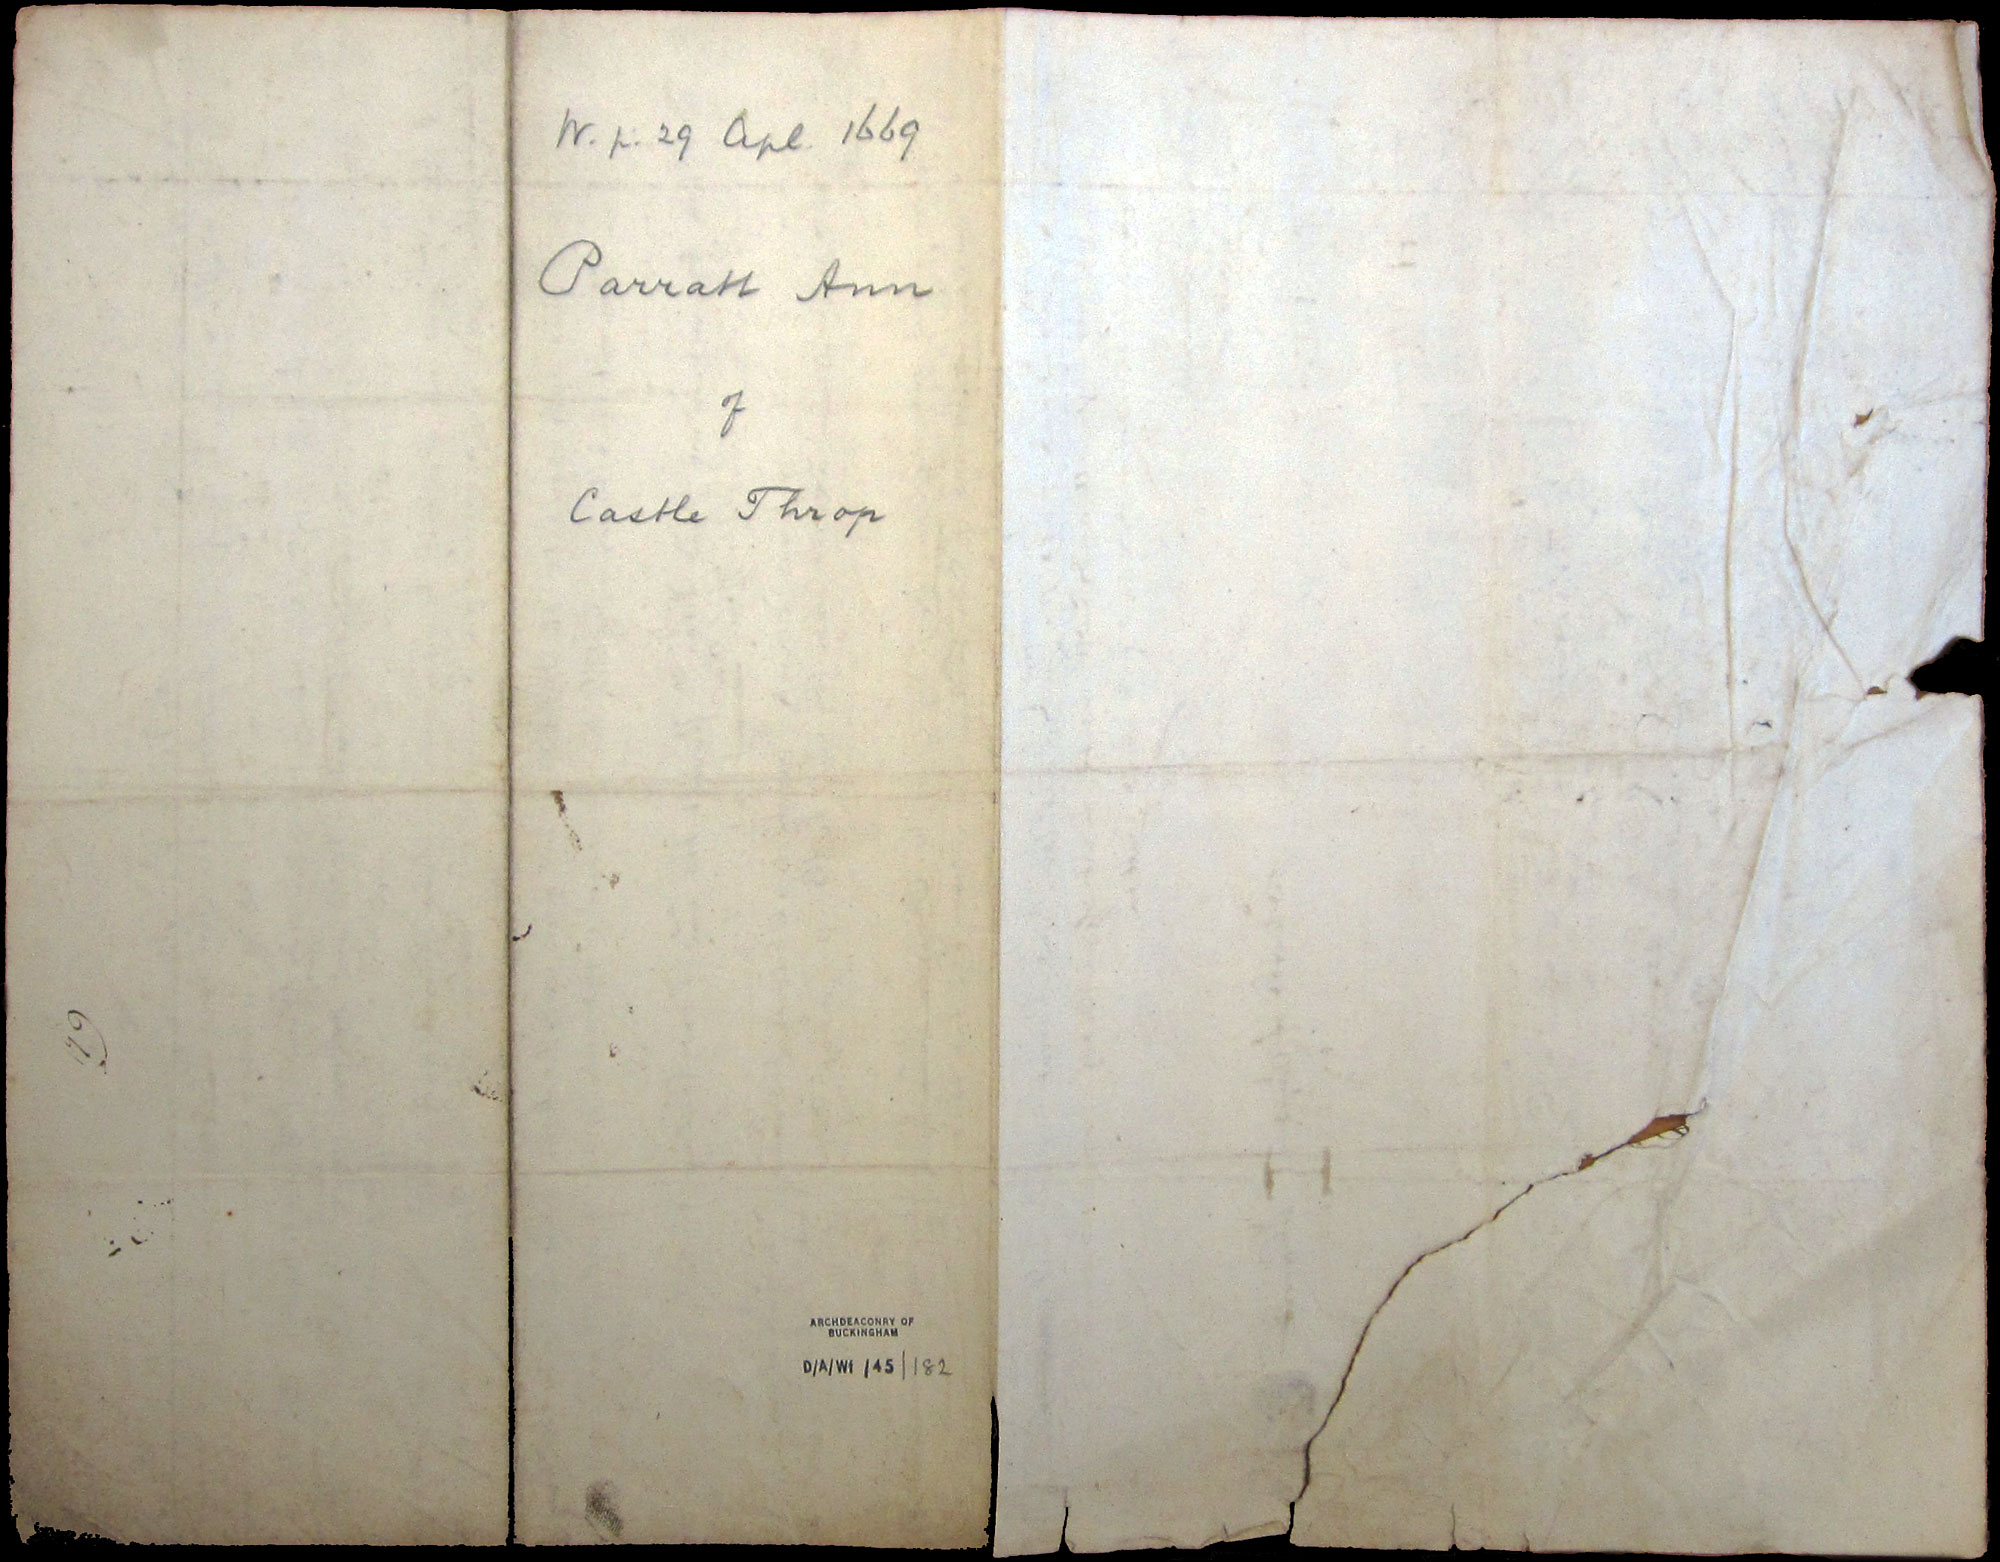 W. p. 29 Apl. 1669
Parratt Ann
of
Castle Throp
ARCHDEACONRY OF
BUCKINGHAM
D/A/Wf /45/182